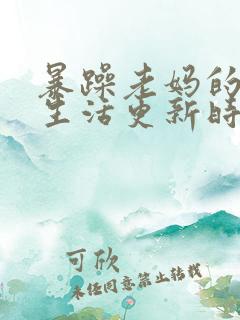 暴躁老妈的
生活更新时
可欣
未经同意禁止转载